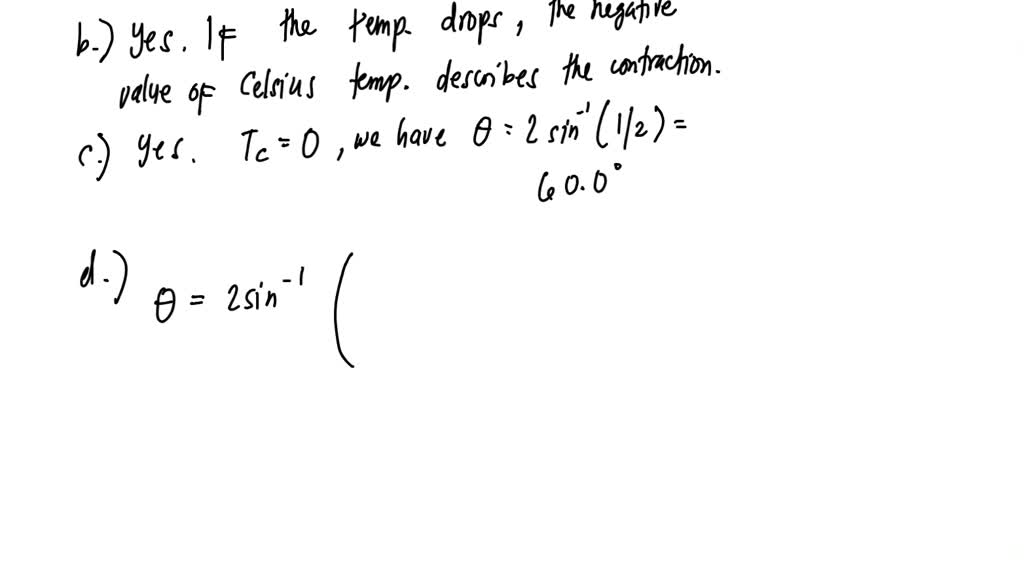 b.) yes. If the temp. drops, the negative
value of Celsius temp. describes the contraction.
c.) yes. Tc = 0, we have θ = 2 sin⁻¹(1/2) =
60.0°
d.) θ = 2sin⁻¹ (